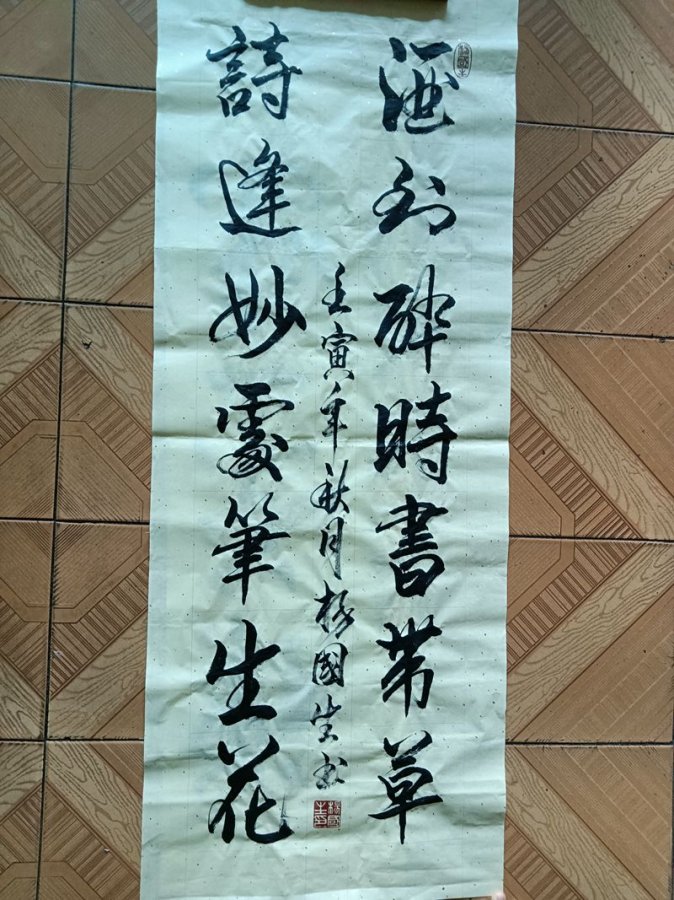 酒到醉時書帶草
詩逢妙處筆生花
壬寅年秋月楊國生書